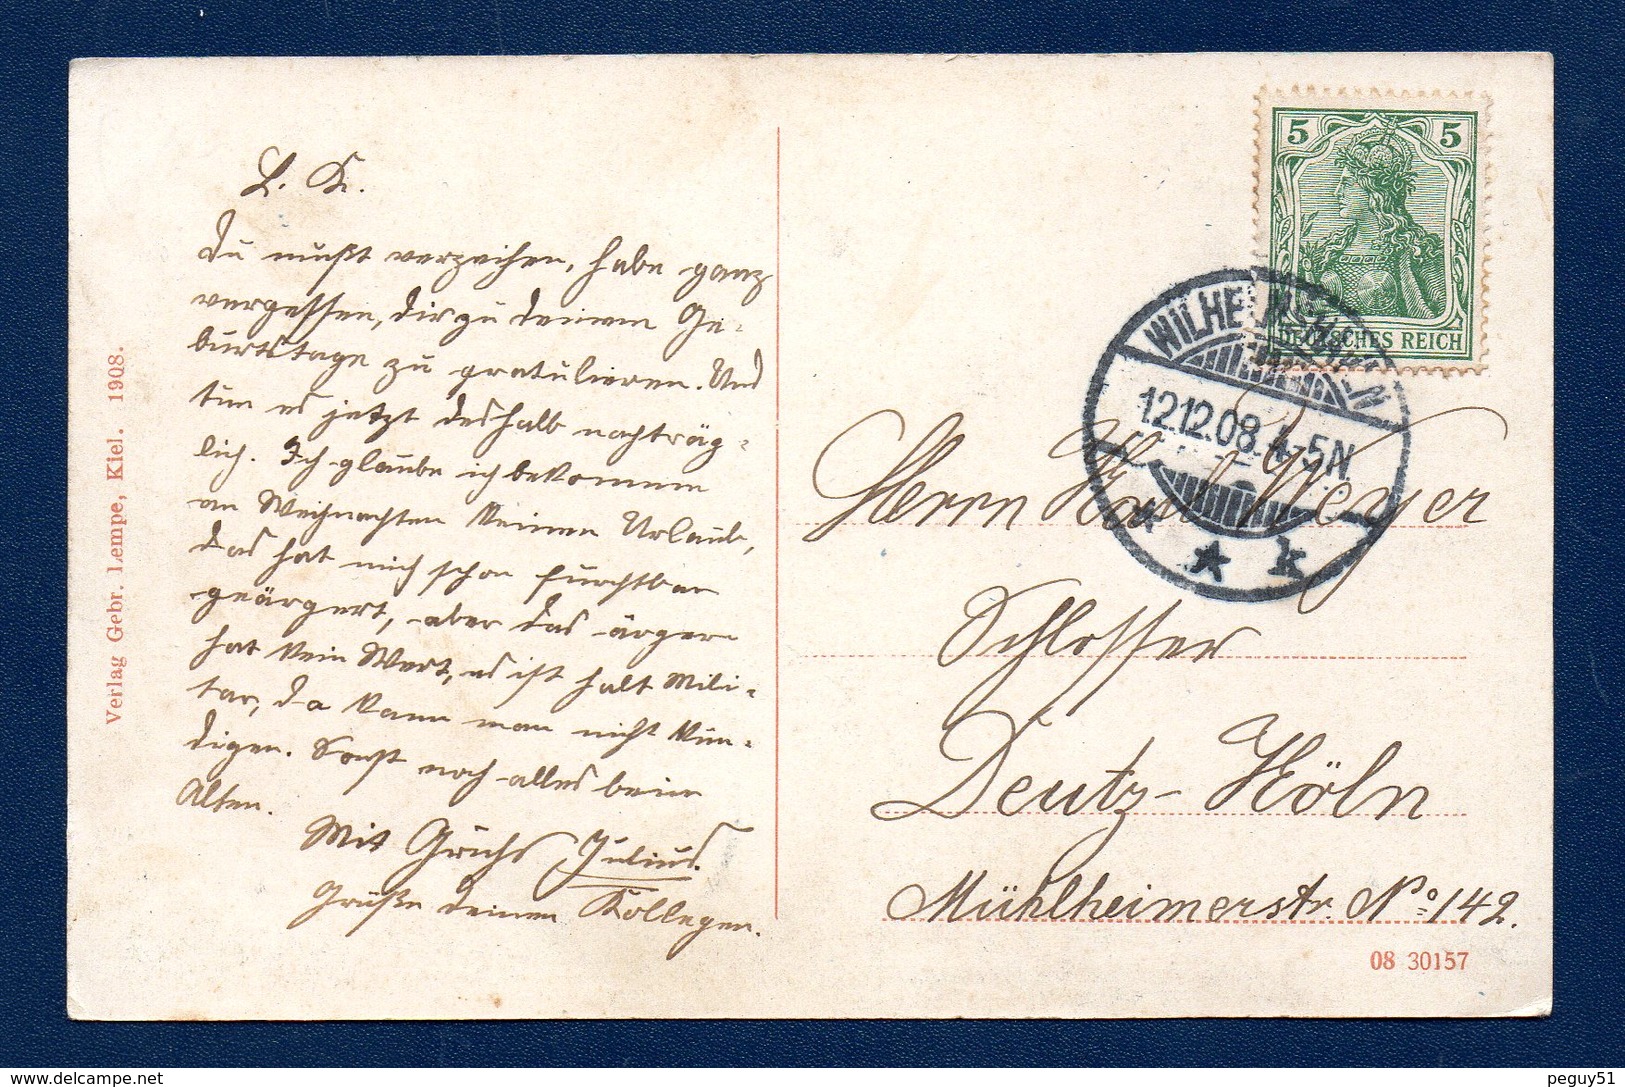 L. K.
Du mußt verzeihen, habe ganz
vergessen, dir zu deinem Ge-
burtstage zu gratulieren. Und
tue es jetzt deshalb nachträg-
lich. Ich glaube ich bekomme
an Weihnachten keinen Urlaub,
das hat mich schon furchtbar
geärgert, aber das ärgern
hat kein Wert, es ist halt Mili-
tär, da kann man nicht kün-
digen. Sonst noch alles beim
Alten.
Mit Gruß Julius.
Grüße deinen Kollegen.
Verlag Gebr. Lempe, Kiel. 1908.
5 5
DEUTSCHES REICH
WILHELMSHAVEN
12.12.08. 4-5N
* * k
Herrn Karl Weyer
Schlosser
Deutz-Köln
Mühlheimerstr. No 142.
08 30157
peguy51
delcampe.net